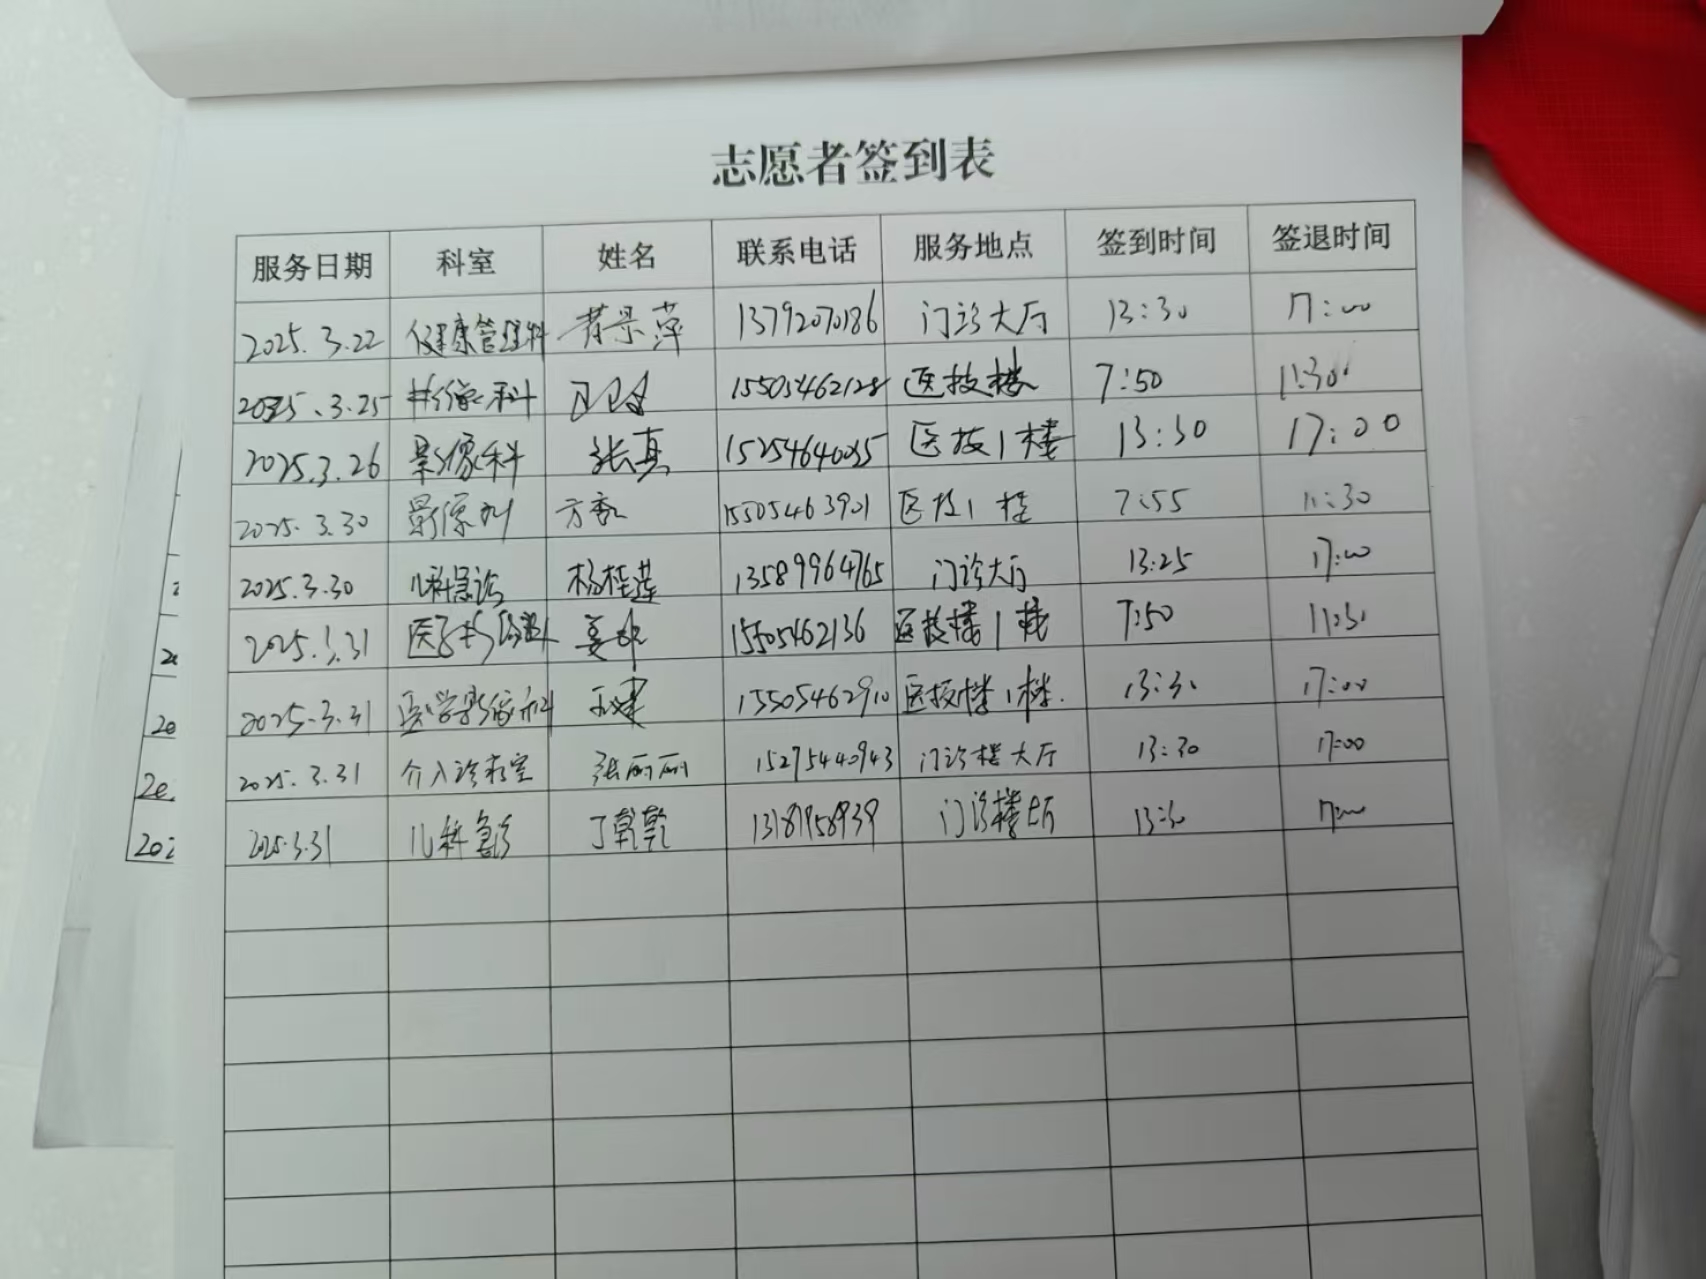 志愿者签到表
服务日期 科室 姓名 联系电话 服务地点 签到时间 签退时间
2025.3.22 健康管理科 景萍 13792070186 门诊大厅 13:30 17:00
2025.3.25 影像科 15505462128 医技楼 7:50 11:30
2025.3.26 影像科 张真 15254640035 医技1楼 13:30 17:00
2025.3.30 影像科 方 15505463901 医技1楼 7:55 11:30
2025.3.30 儿科急诊 杨桂莲 13589964765 门诊大厅 13:25 17:00
2025.3.31 医学影像科 姜 15505462136 医技楼1楼 7:50 11:30
2025.3.31 医学影像科 15505462910 医技楼1楼. 13:30 17:00
2025.3.31 介入诊疗室 张丽丽 15275440943 门诊楼大厅 13:30 17:00
2025.3.31 儿科急诊 丁乾乾 门诊楼大厅 13:30 17:00